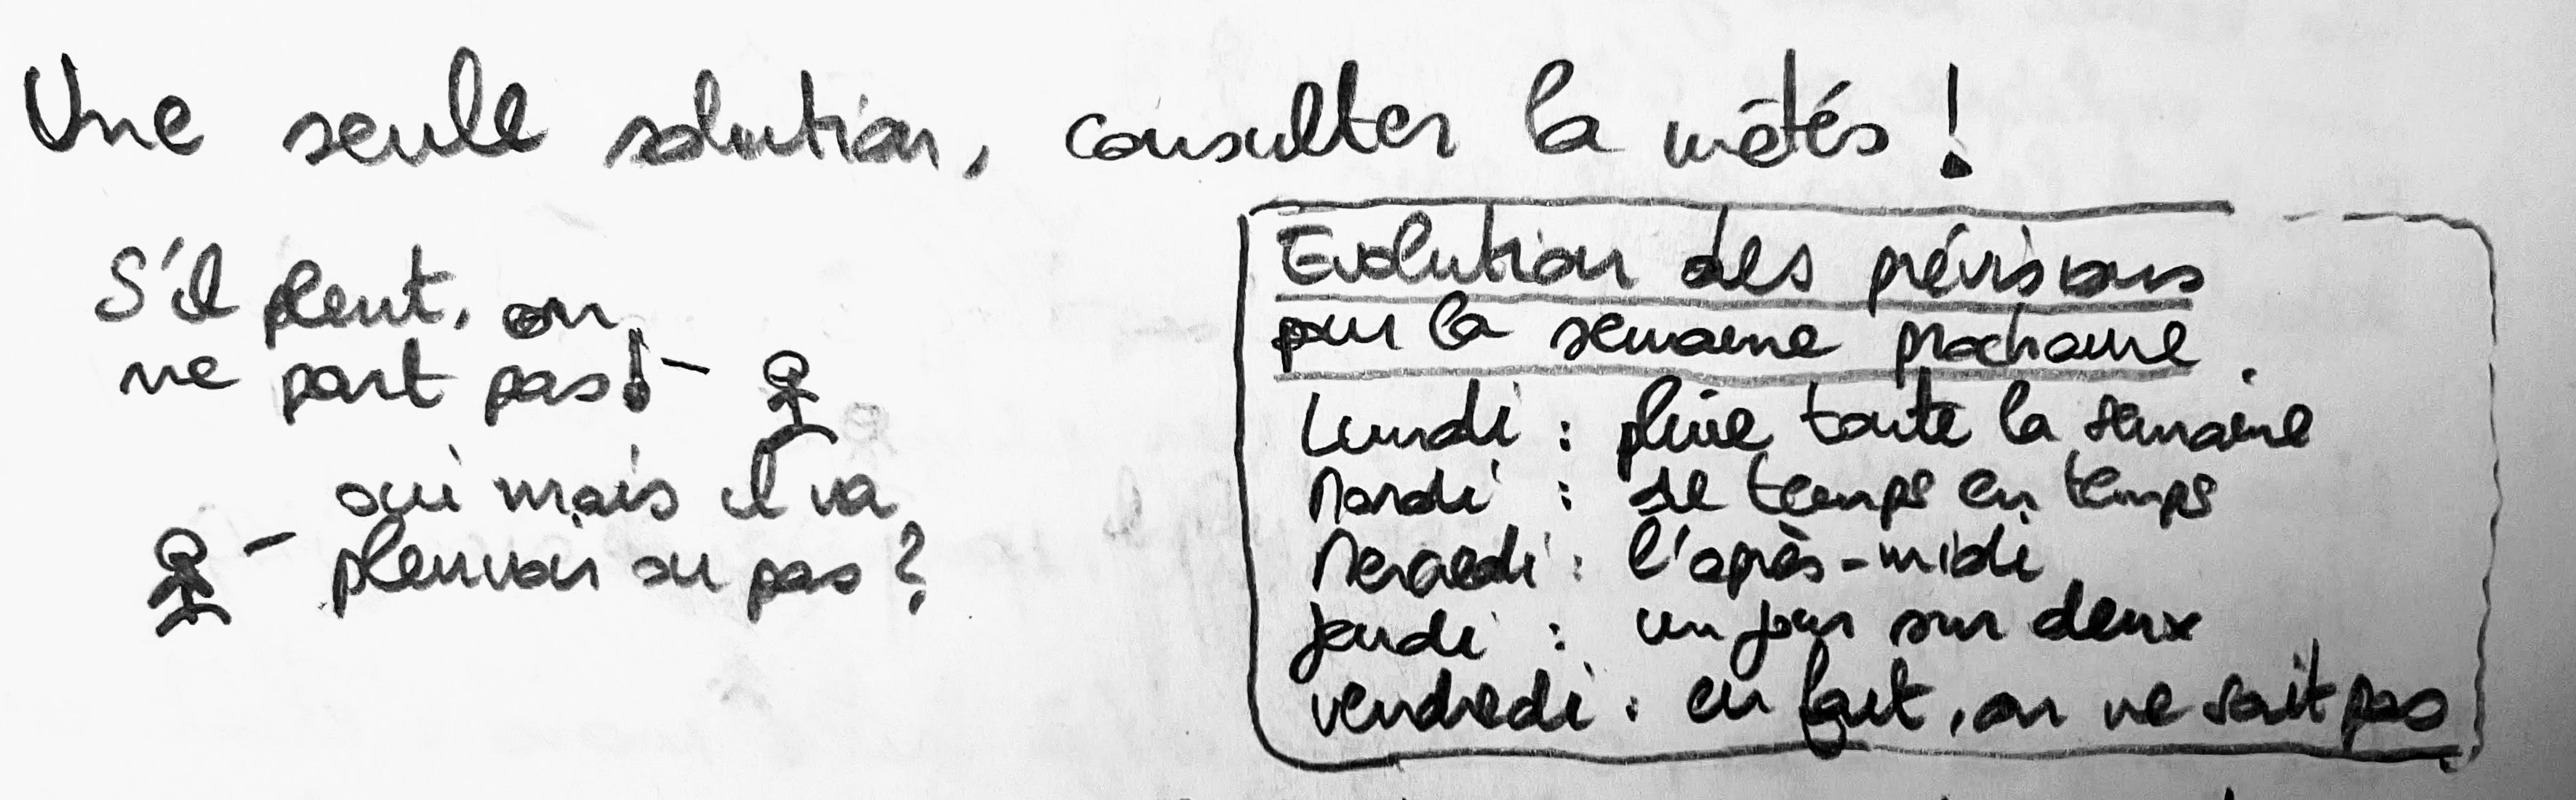 Une seule solution, consulter la météo !
S'il pleut, on
ne part pas ! -
oui mais il va
- pleuvoir ou pas ?
Evolution des prévisions
pour la semaine prochaine.
Lundi : pluie toute la semaine
Mardi : de temps en temps
Mercredi : l'après-midi
jeudi : un jour sur deux
vendredi : en fait, on ne sait pas